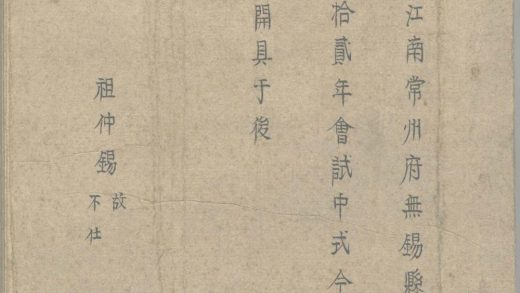 江南常州府無錫縣
拾貳年會試中式今
開具于後
祖仲錫
故
不仕